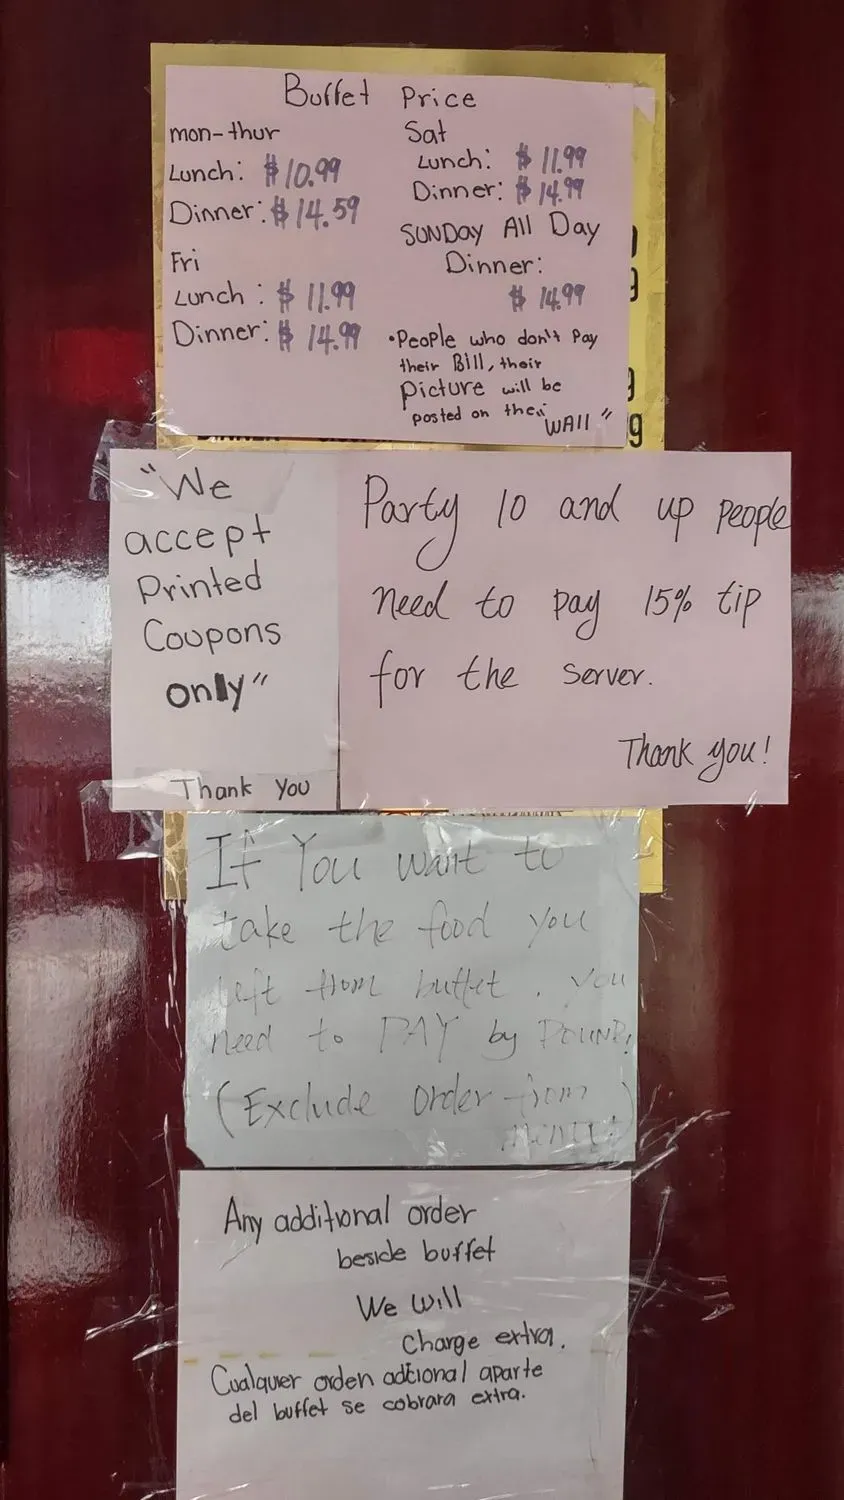 Buffet Price
mon-thur
Lunch: $10.99
Dinner: $14.59
Fri
Lunch: $11.99
Dinner: $14.99
Sat
Lunch: $11.99
Dinner: $14.99
SUNDay All Day
Dinner:
$14.99
•People who don't Pay
their Bill, their
Picture will be
posted on the
"WAll"
"We
accept
Printed
Coupons
only"
Thank You
Party 10 and up people
need to pay 15% tip
for the server.
Thank you!
If You want to
take the food you
left from buffet, you
need to PAY by POUND!
(Exclude order from
menu)
Any additional order
beside buffet
We will
Charge extra.
Cualquier orden adtional aparte
del buffet se cobrara extra.